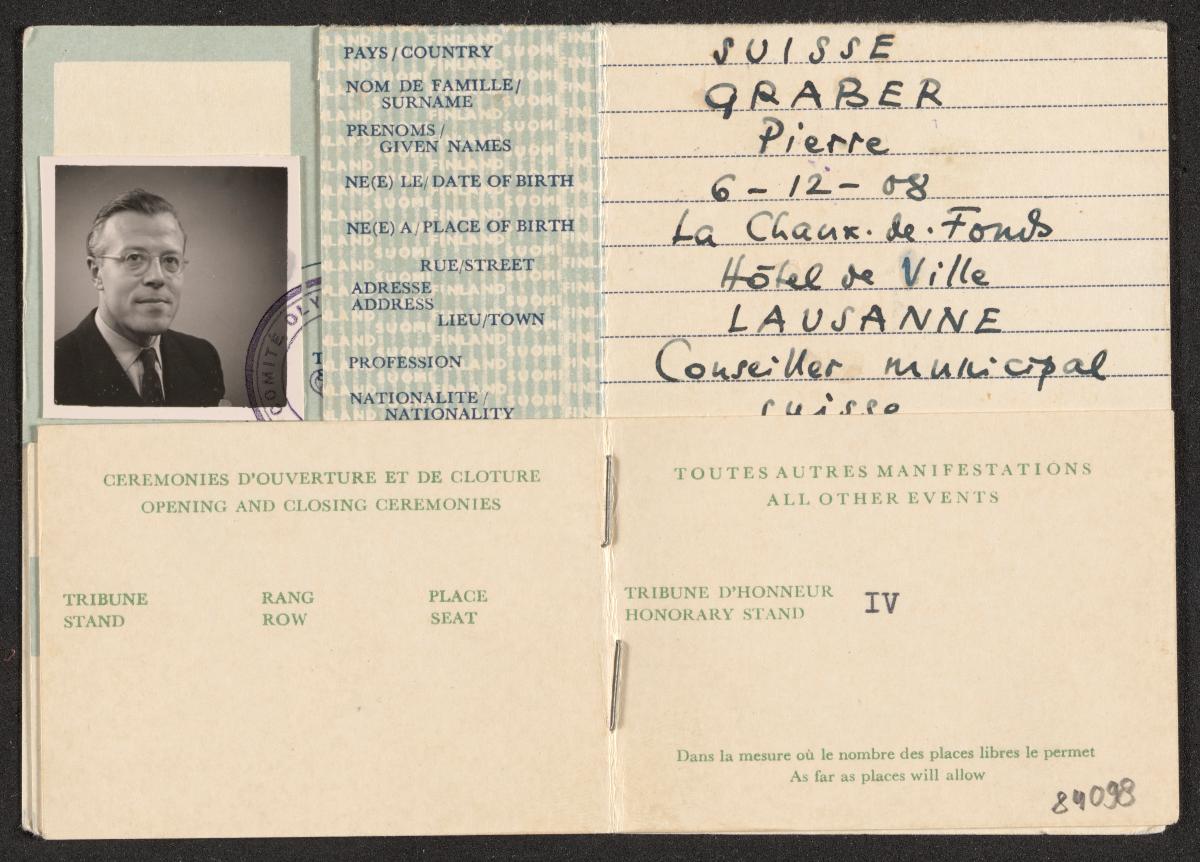 PAYS/COUNTRY SUISSE
NOM DE FAMILLE/
SURNAME GRABER
PRENOMS/
GIVEN NAMES Pierre
NE(E) LE/DATE OF BIRTH 6-12-08
NE(E) A/PLACE OF BIRTH La Chaux.de.Fonds
RUE/STREET Hôtel de Ville
ADRESSE
ADDRESS
LIEU/TOWN LAUSANNE
PROFESSION Conseiller municipal
NATIONALITE/
NATIONALITY suisse
COMITÉ OLY
CEREMONIES D'OUVERTURE ET DE CLOTURE
OPENING AND CLOSING CEREMONIES
TRIBUNE RANG PLACE
STAND ROW SEAT
TOUTES AUTRES MANIFESTATIONS
ALL OTHER EVENTS
TRIBUNE D'HONNEUR
HONORARY STAND IV
Dans la mesure où le nombre des places libres le permet
As far as places will allow
84098